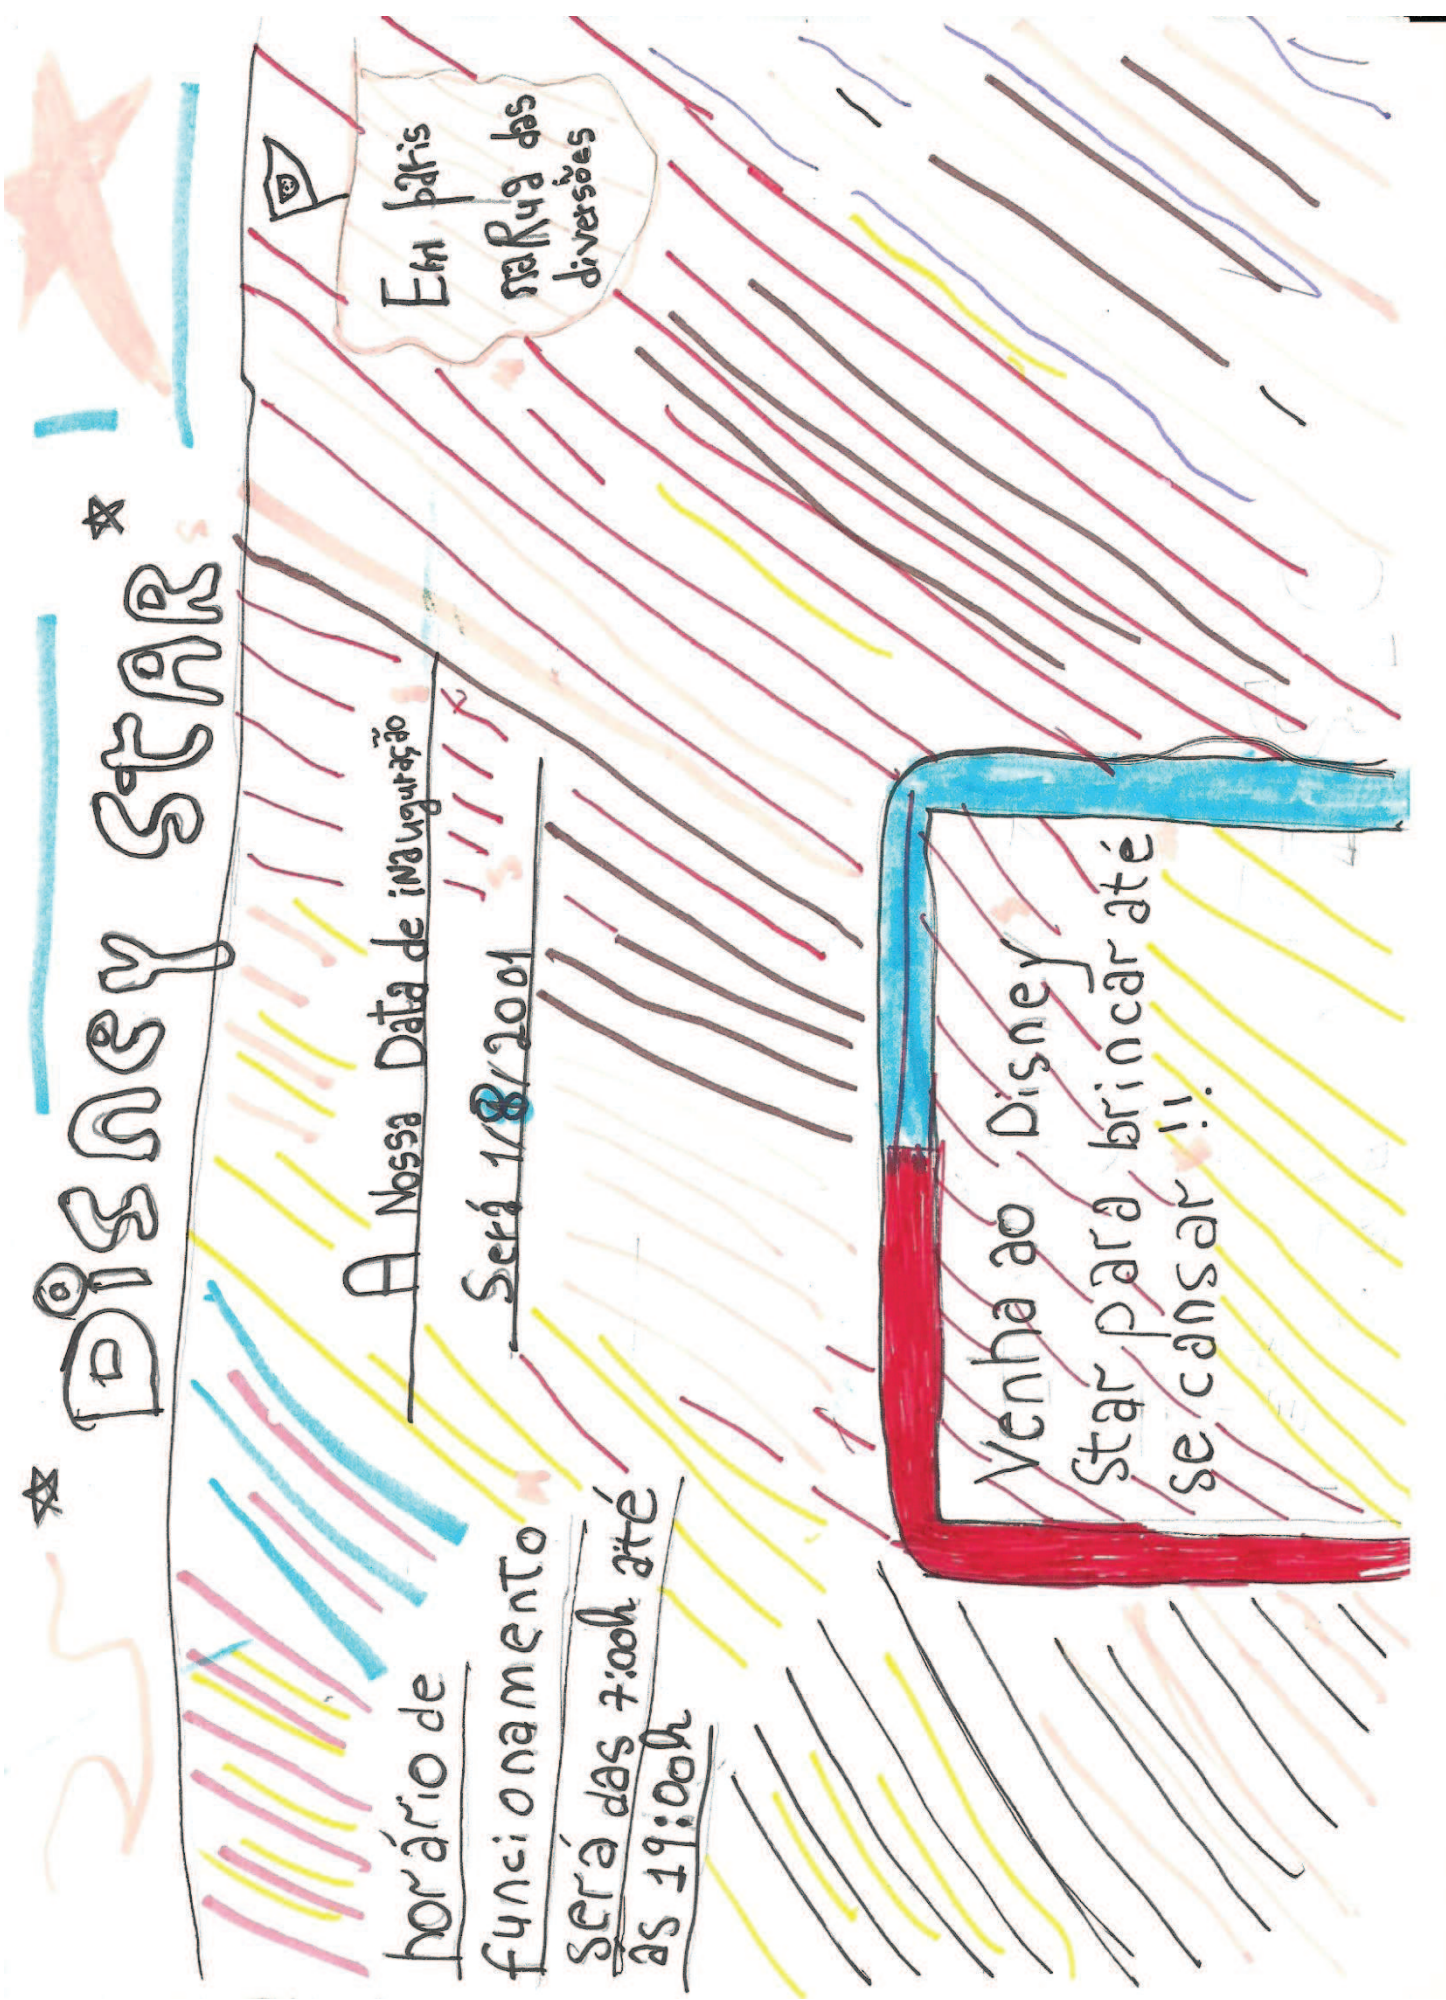 Disney Star
Em paris
na Rua das
diversões
A Nossa Data de inauguração
Será 1/8/2001
horário de
funcionamento
será das 7:00h até
às 19:00h
Venha ao Disney
Star para brincar até
se cansar!!